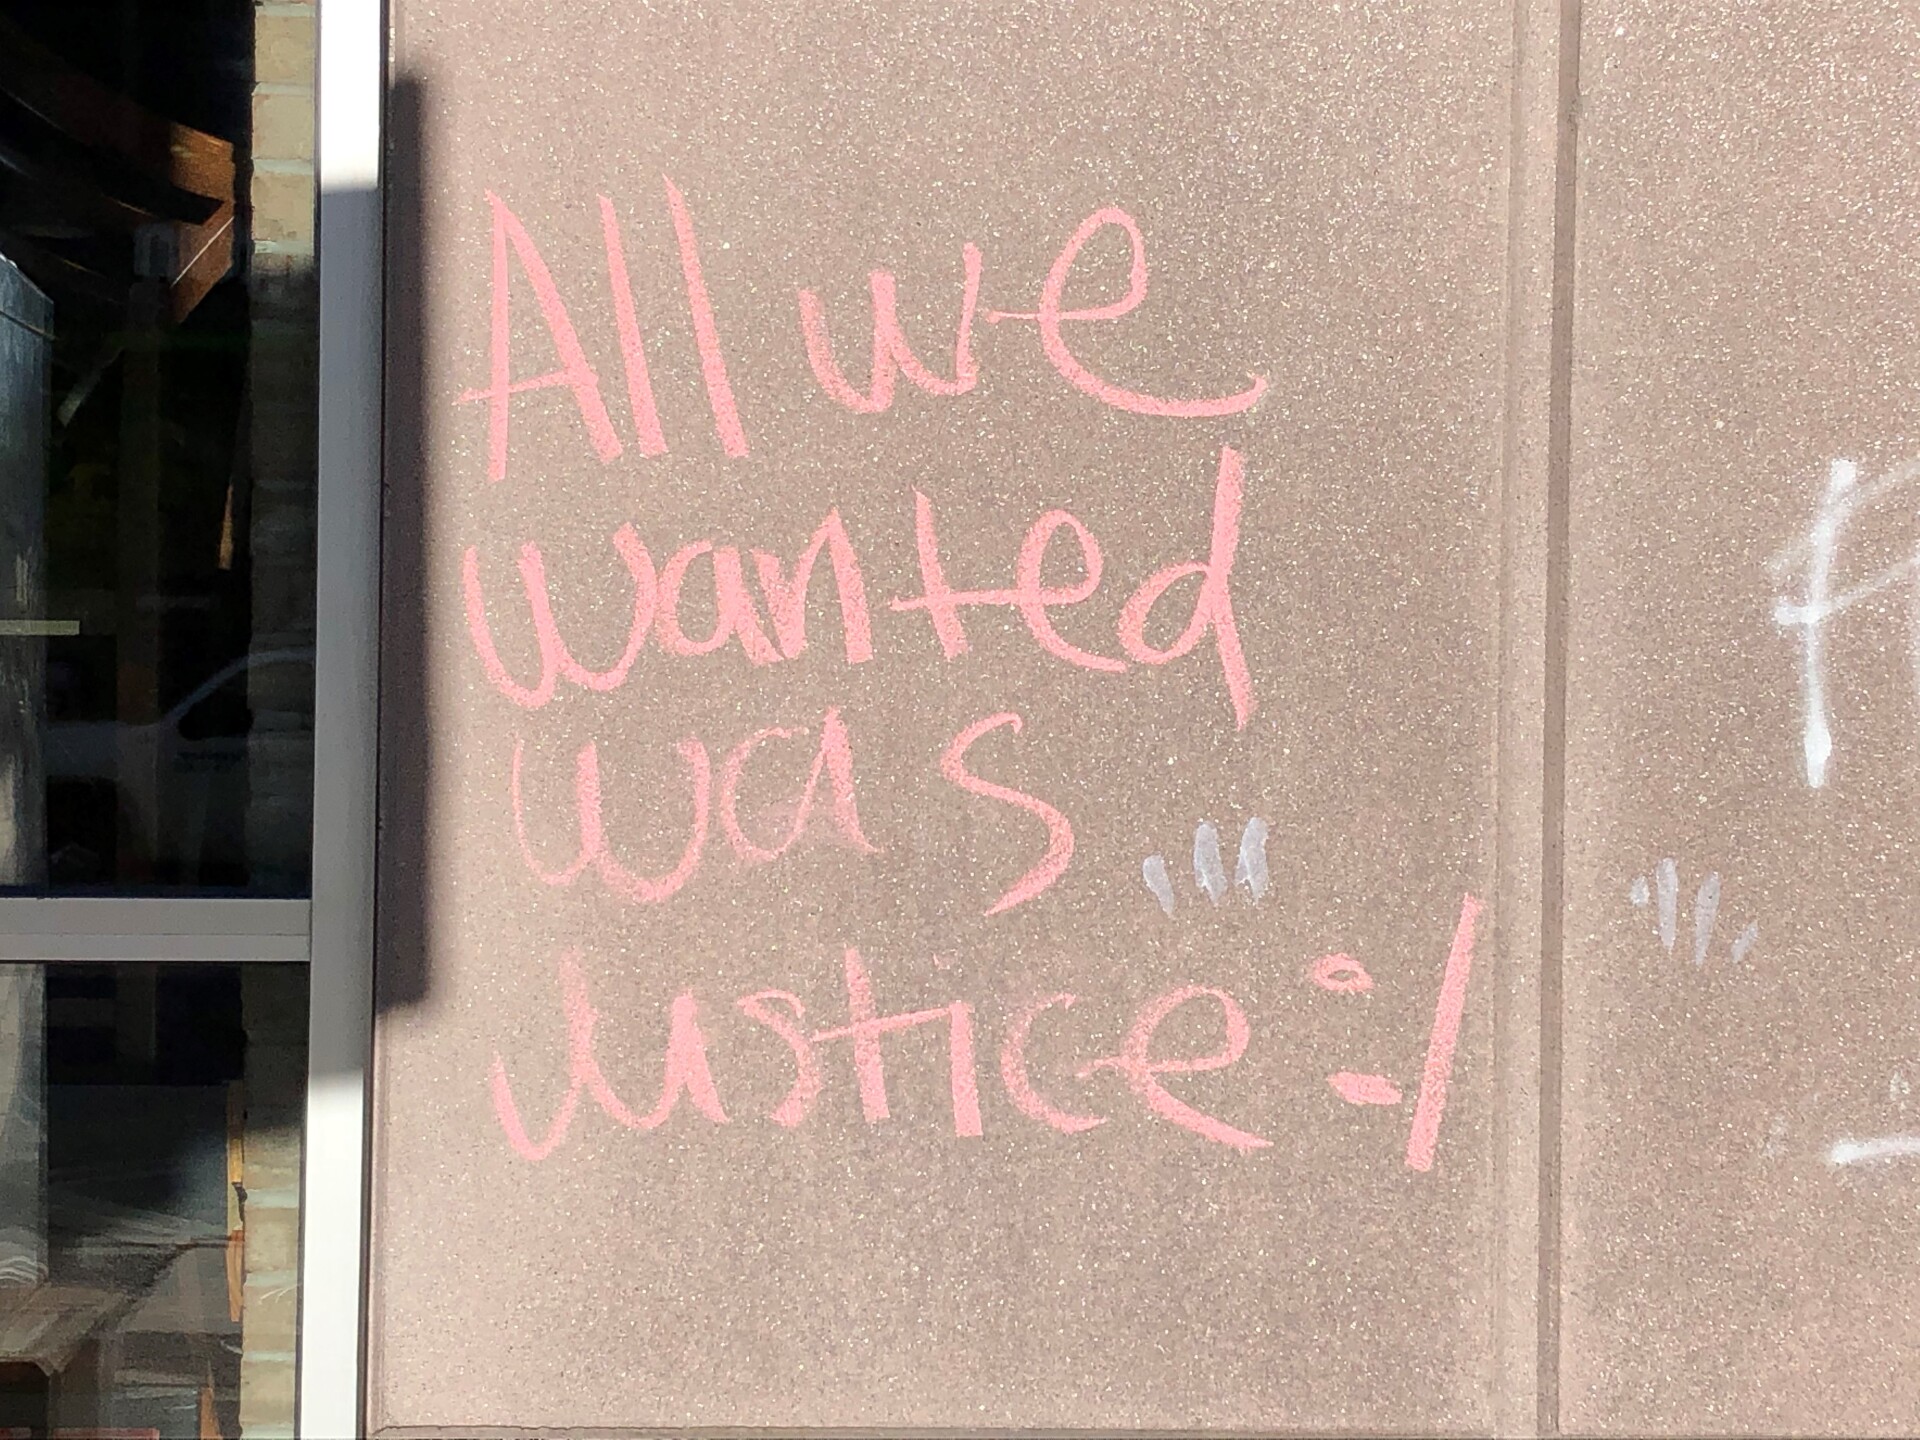 All we
wanted
was
Justice :/